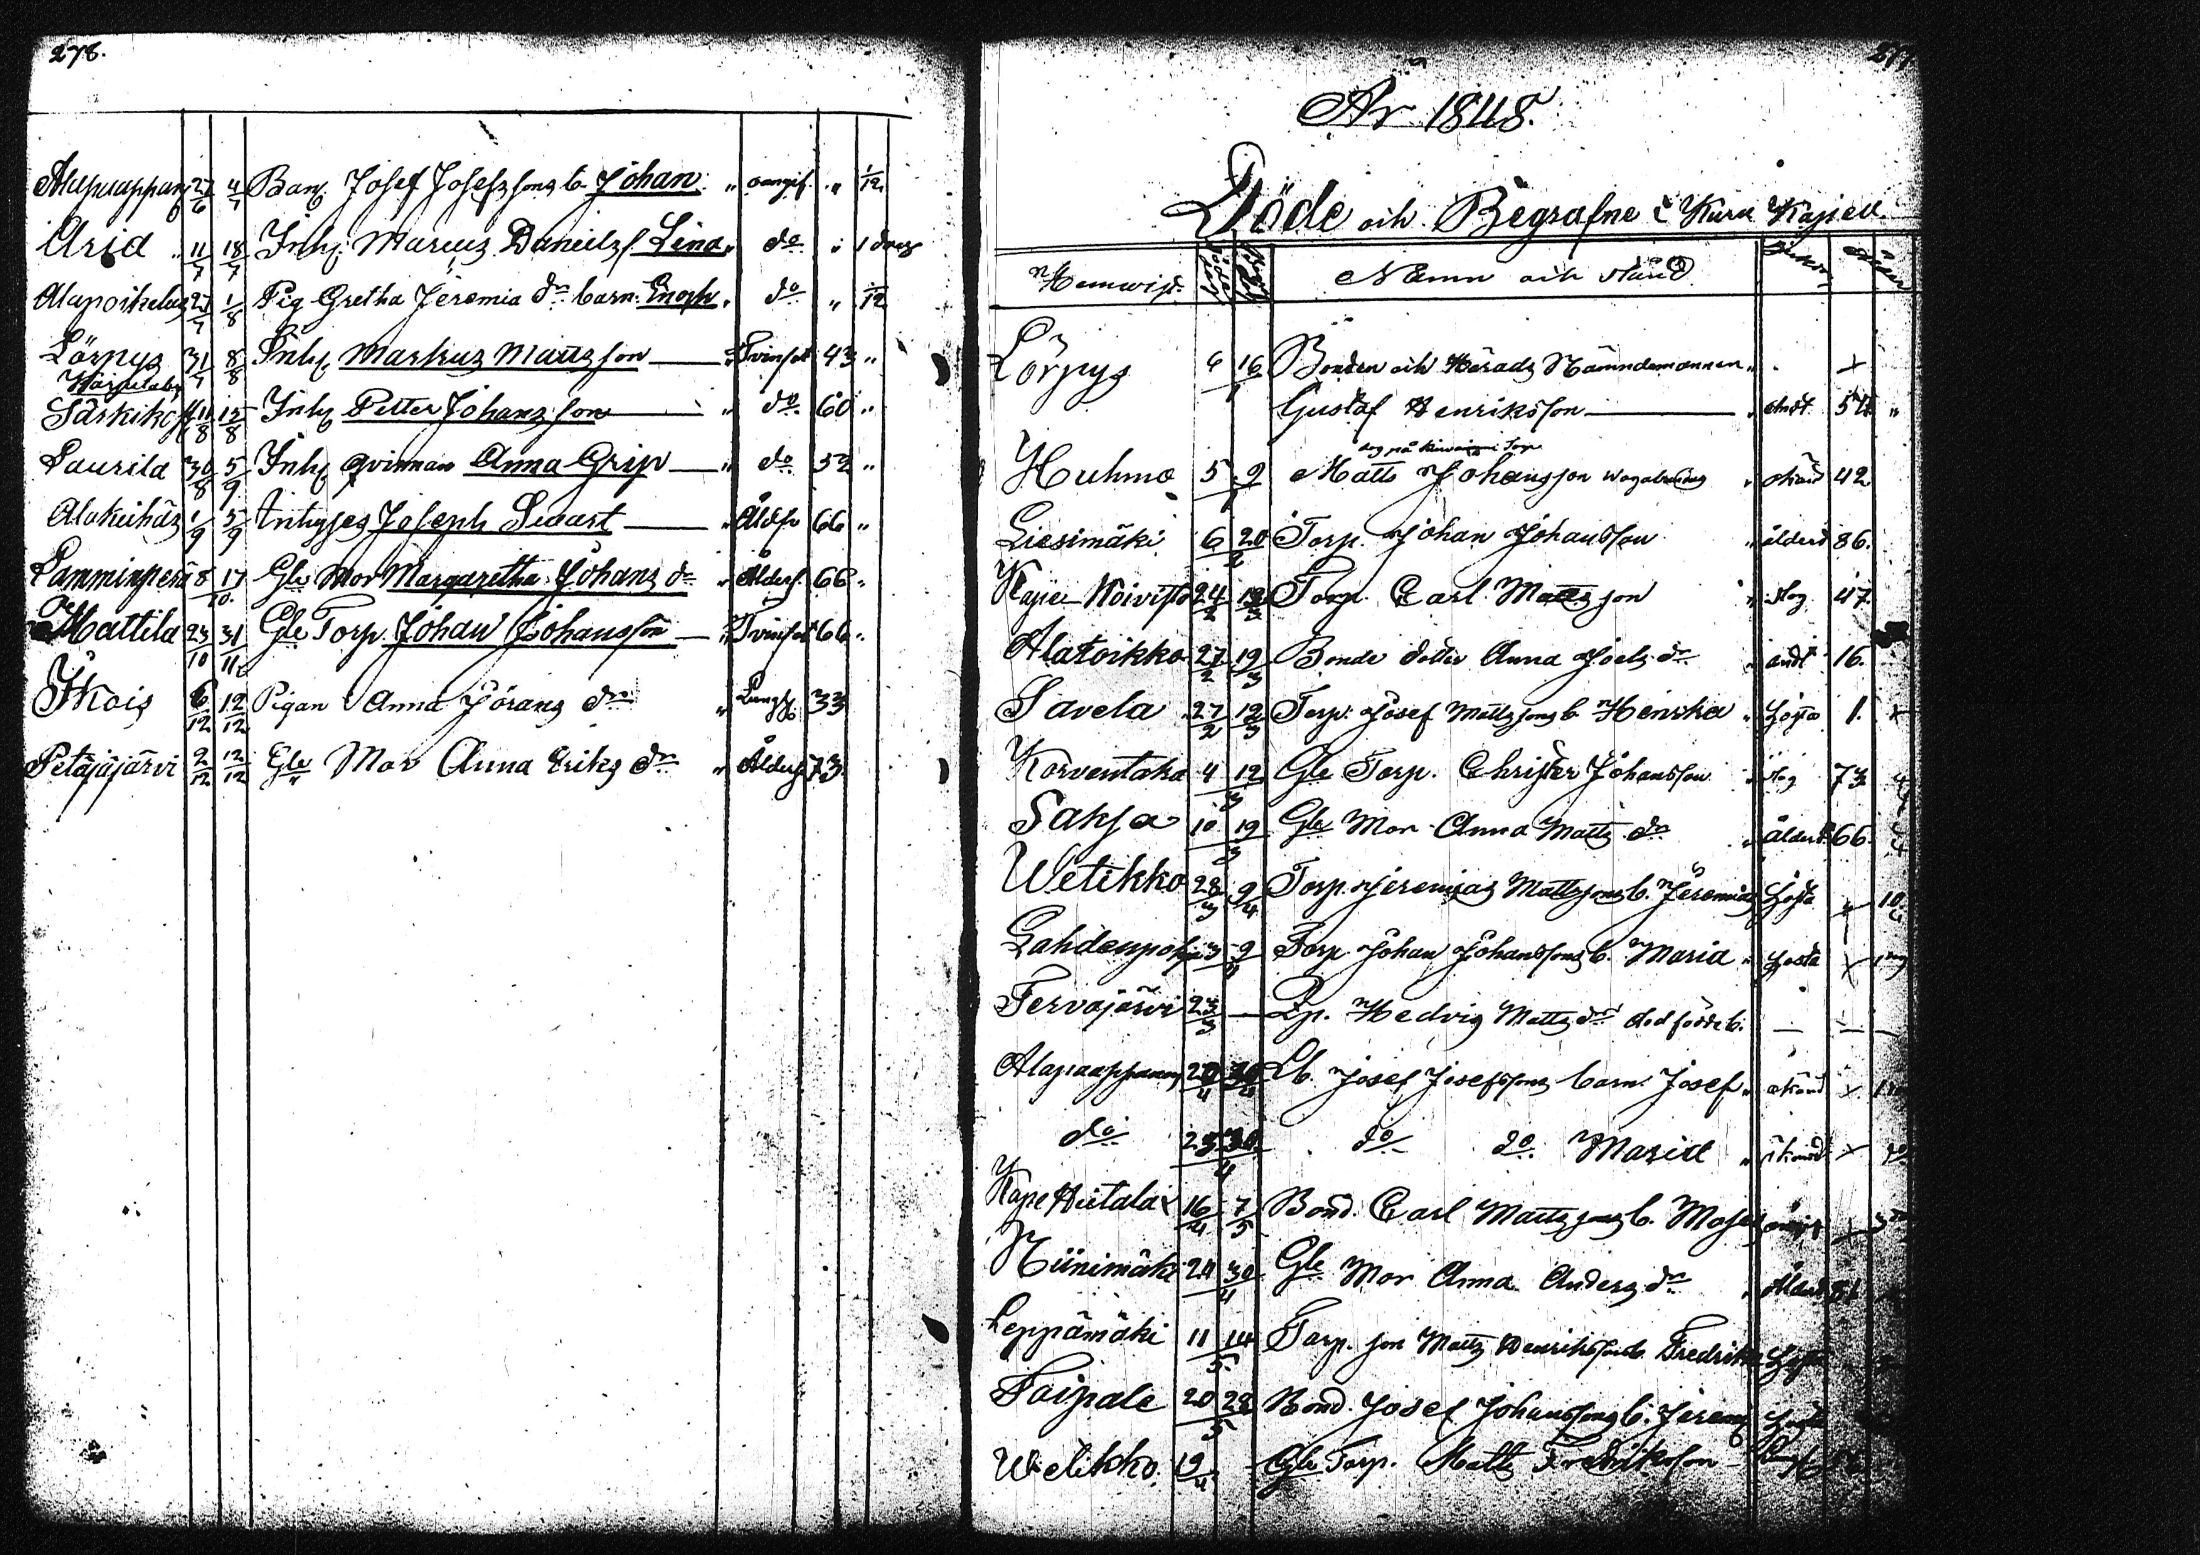 278.
Alapaappan 27/6 4/7 Ban. Josef Josefssons b. Johan " oangif. " 1/12
Arid " 11/7 18/7 Inh. Marcus Daniels s. Lina " do " 1 
Alapoikelus 27/7 1/8 Pig Gretha Jeremia dr barn. Enoch " do " 1/12
Lörpys 31/7 8/8 Inh. Markus Mattsson " Tvinsot 43 "
Särkikoski 11/8 15/8 Inh. Petter Johansson " do 60 "
Laurila 30/8 5/9 Inh. qvinnan Anna Grip " do 52 "
1/9 5/9 Inhyses Joseph Swart " Åldr 66 "
Lamminperä 8 17/10 Gle Mor Margaretha Johans dr " Åldersv. 66 "
Mattila 23/10 31/11 Gle Torp. Johan Johansson " Tvinsot 66 "
Ikois 6/12 12/12 Pigan Anna Jörans dr " Lungs. 33
Petäjäjärvi 2/12 12/12 Gle Mor Anna Eriks dr " Ålders 73
277
År 1848.
Döde och Begrafne i Kuru Kapell.
Hemvist. Namn och stånd Ålder
Lörpys 6 16/1 Bonden och Härads Nämndemannen " x
Gustaf Henriksson " andt. 54 "
Huhmo 5 9/1 Matts Johansson " okänd 42
Liesimäki 6 20/2 Torp. Johan Johansson " ålderd 86.
Kapee Koivisto 24/2 12/3 Torp. Carl Matts son " slag 47
Alatoikko 27/2 19/3 Bonde dotter Anna Joels dr " andt 16.
Savela 27/2 12/3 Torp. Josef Mattssons b. Henrika " hosta 1. x
Korventaka 4 12/3 Gle Torp. Christer Johansson " slag 73
Saksa 10 19/3 Gle Mor Anna Matts dr " Ålderd 66
Wetikko 28/3 9/4 Torp. Jeremias Mattssons b. Jeremias hosta " 10
Lahdenpohja 3 9/4 Torp Johan Johanssons b. Maria " hosta x
Tervajärvi 23/3 — Hedvig Matts dr död födde b. — — —
Alapaappanen 20/4 30/4 Josef Josefssons barn Josef " okänd x
do 23 30/4 do do Maria " okänd x do
Kape Hietala 16/4 7/5 Bond. Carl Mattssons b. Moses
Niinimäki 24 30/4 Gle Mor Anna Anders dr " Ålderd 81
Leppämäki 11 14/5 Torp. son Matts Henrikssons b. Fredrika
Taipale 20 28/5 Bond. Josef Johanssons b. Jerem
Wetikko. 19/4 — Gle Torp. Matts Fredriksson